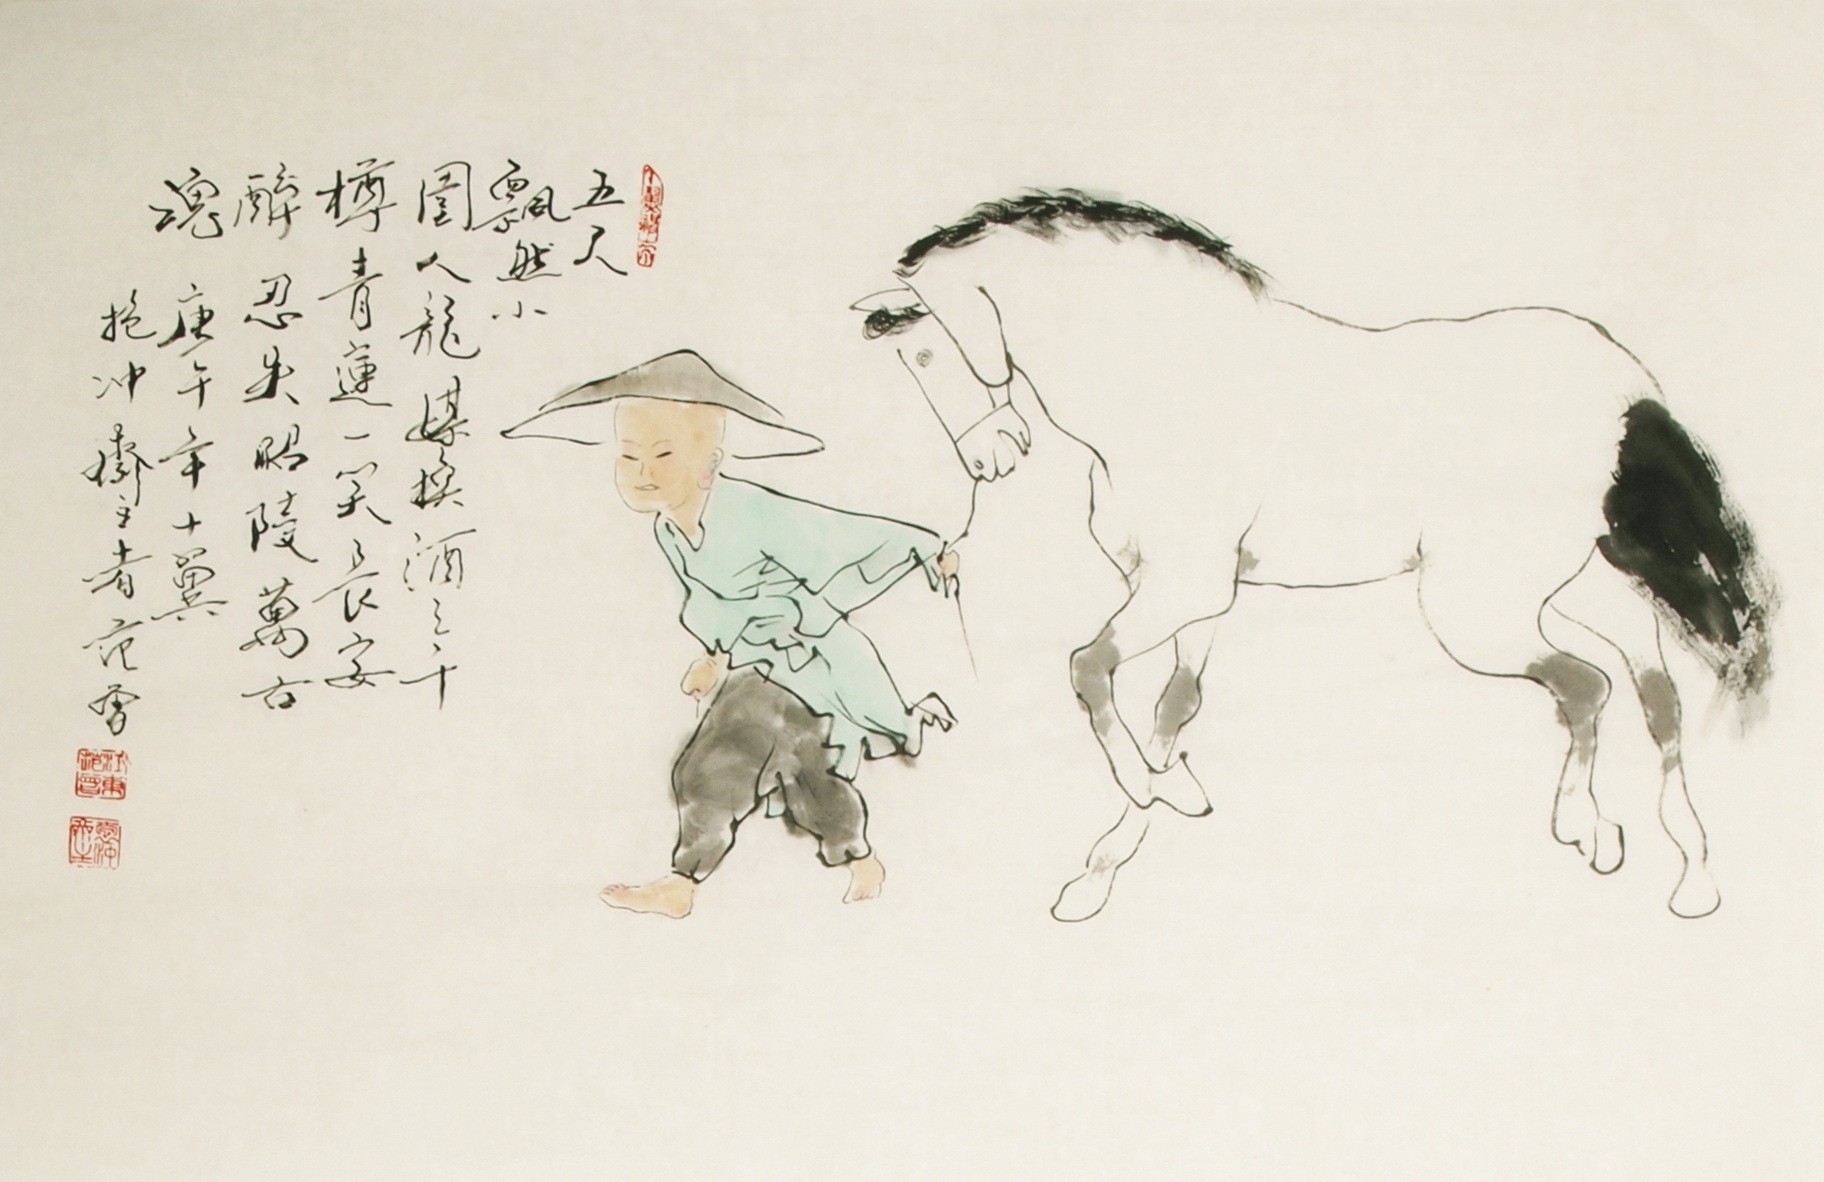 五尺
飘然小
圉人龍媒換酒三千
樽青蓮一笑長安
醉忍失昭陵萬古
魂 庚午年十翼
抱冲齋主者范曾